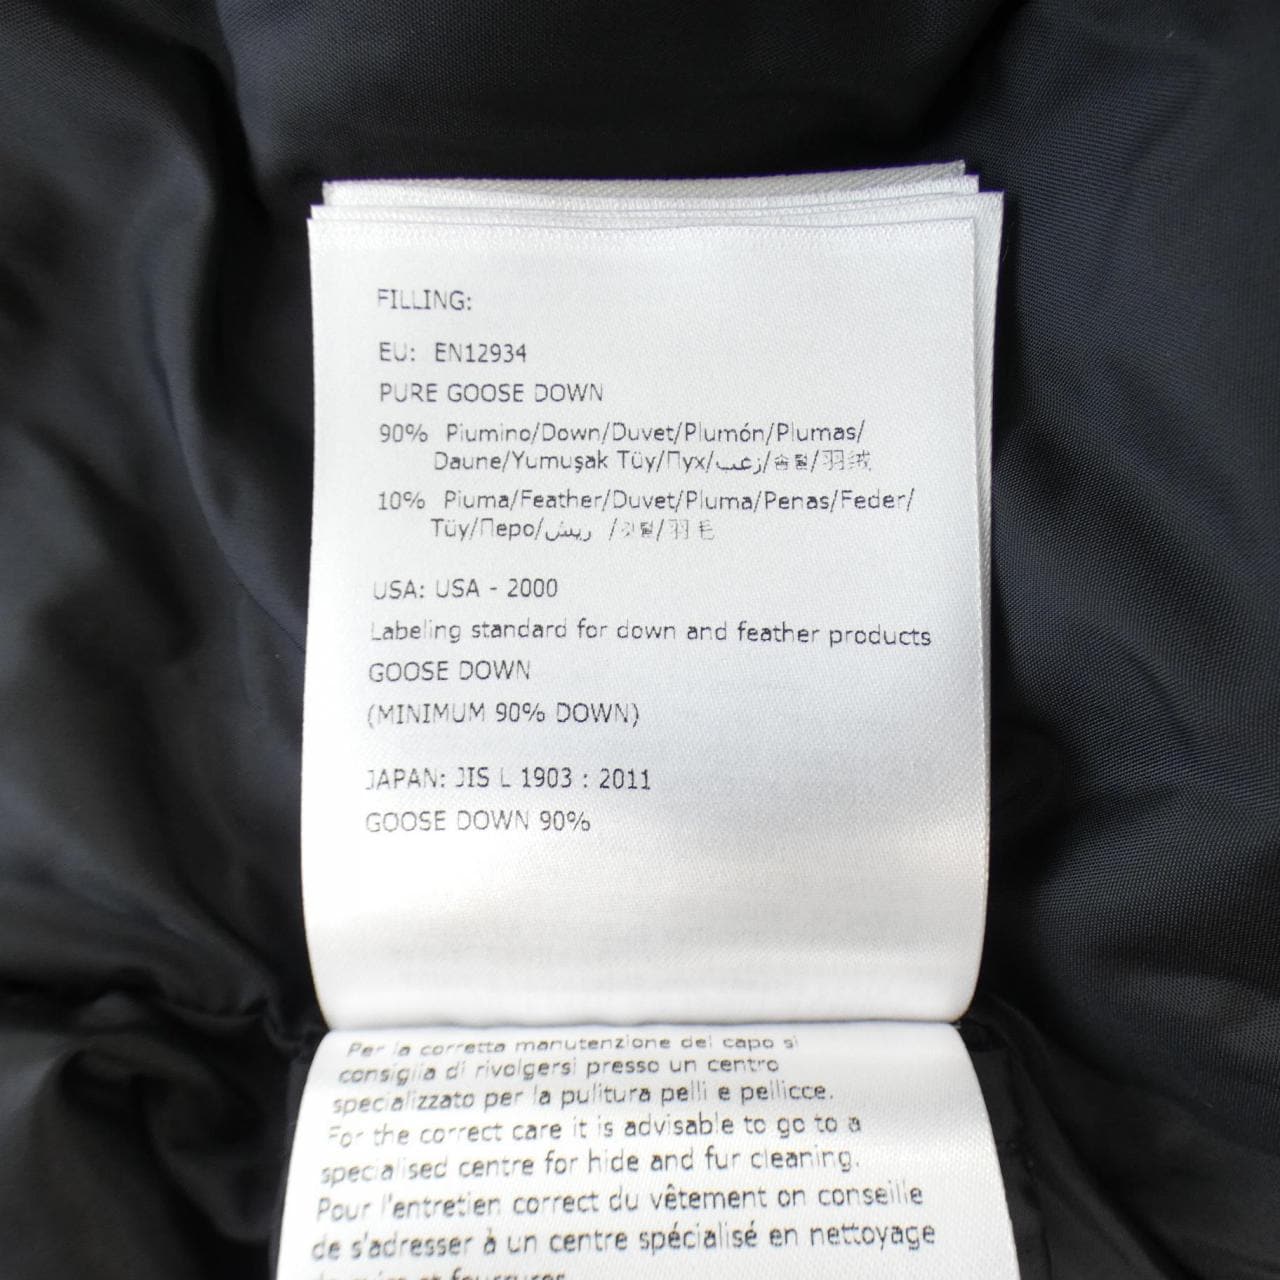 FILLING:
EU: EN12934
PURE GOOSE DOWN
90% Piumino/Down/Duvet/Plumón/Plumas/
Daune/Yumuşak Tüy/Пух/زغب/솜털/羽绒
10% Piuma/Feather/Duvet/Pluma/Penas/Feder/
Tüy/Перо/ريش /깃털/羽毛
USA: USA - 2000
Labeling standard for down and feather products
GOOSE DOWN
(MINIMUM 90% DOWN)
JAPAN: JIS L 1903 : 2011
GOOSE DOWN 90%
Per la corretta manutenzione del capo si
consiglia di rivolgersi presso un centro
specializzato per la pulitura pelli e pellicce.
For the correct care it is advisable to go to a
specialised centre for hide and fur cleaning.
Pour l'entretien correct du vêtement on conseille
de s'adresser à un centre spécialisé en nettoyage